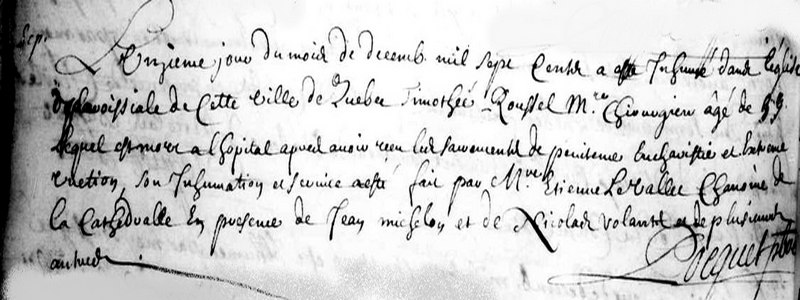 L'onzieme jour du mois de decemb. mil sept Cents a esté Inhumé dans l'église
paroissialle de Cette ville de Quebec Timothée Roussel M.re Chirurgien âgé de
lequel est mort a l'hôpital apres avoir receu les sacrements de penitence Eucharistie et Extreme
onction, son Inhumation et service a esté fait par M.re Etienne Levallet Chanoine de
la Cathedralle En presence de Jean michelon et de Nicolas volant et de plusieurs
autres
Pocquet ptre